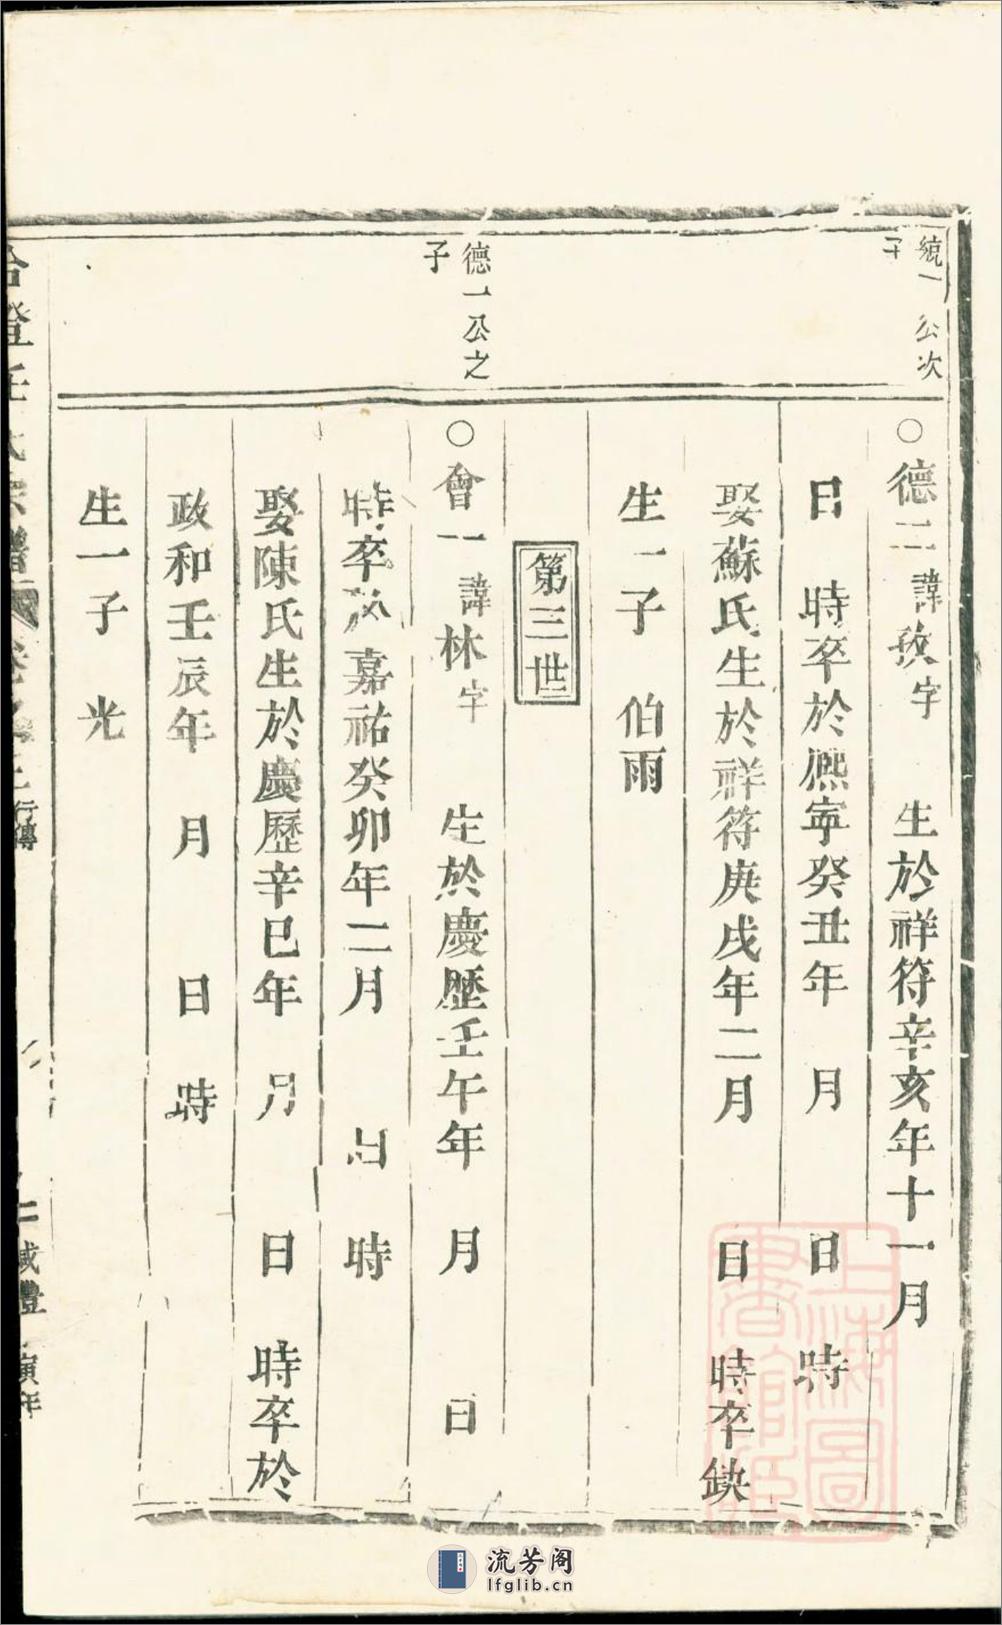 統一公次
子
○德二諱孜字　生於祥符辛亥年十一月
日　時卒於熈寕癸丑年　月　日　時
娶蘇氏生於祥符庚戌年二月　日　時卒缺
生一子　伯雨
第三世
德一公之
子
○會一諱林字　生於慶歷壬午年　月　日
時卒於嘉祐癸卯年二月　日　時
娶陳氏生於慶歷辛巳年　月　日　時卒於
政和壬辰年　月　日　時
生一子　光
任氏宗譜
行傳
二
咸豐寅年
上海圖書館藏
流芳阁
lfglib.cn